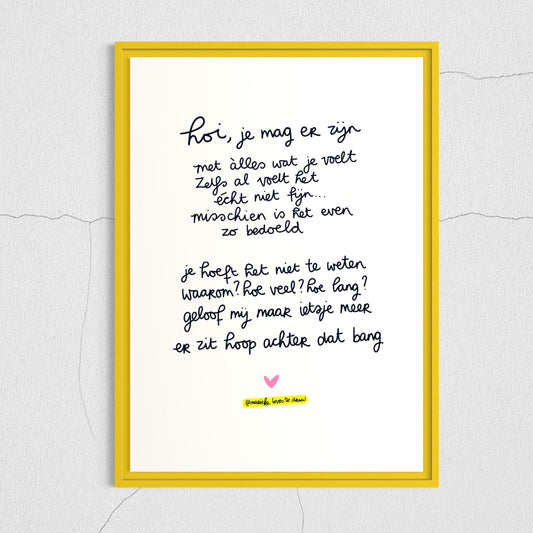 hoi, je mag er zijn
met àlles wat je voelt
zelfs al voelt het
écht niet fijn...
misschien is het even
zo bedoeld
je hoeft het niet te weten
waarom? hoe veel? hoe lang?
geloof mij maar ietsje meer
er zit hoop achter dat bang